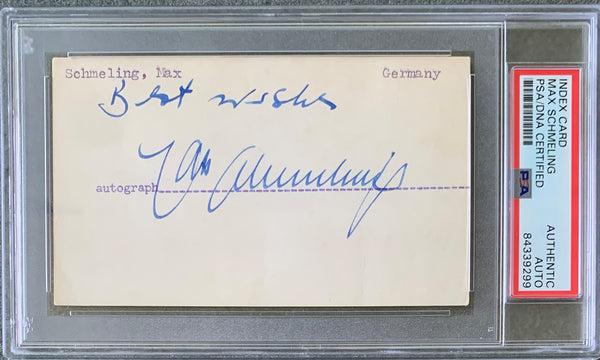 Schmeling, Max Germany
Best wishes
Max Schmeling
autograph
INDEX CARD
MAX SCHMELING
PSA/DNA CERTIFIED
PSA
AUTHENTIC
AUTO
84339299